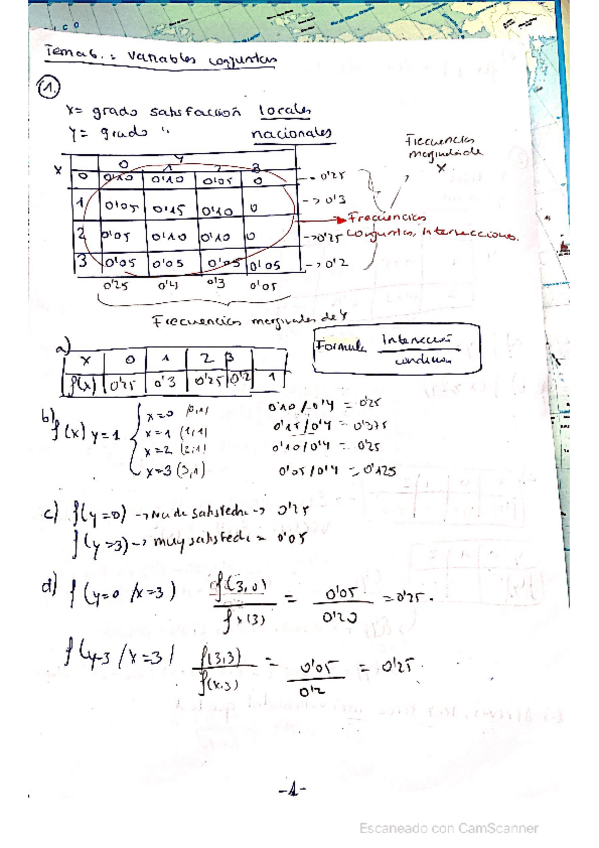 Tema 6. : Variables conjuntas
1.
X = grado satisfacción locales
Y = grado " nacionales
Frecuencias marginales de X
Y
X 0 1 2 3
0 0'10 0'10 0'05 0 → 0'25
1 0'05 0'15 0'10 0 → 0'3
2 0'05 0'10 0'10 0 → 0'25
3 0'05 0'05 0'05 0'05 → 0'2
→ Frecuencias conjuntas, intersecciones.
0'25 0'4 0'3 0'05
Frecuencias marginales de Y
a)
X 0 1 2 3
f(x) 0'25 0'3 0'25 0'2 1
Formula Intersección / condición
b) f(x) y=1
x=0 (0,1) 0'10/0'4 = 0'25
x=1 (1,1) 0'15/0'4 = 0'375
x=2 (2,1) 0'10/0'4 = 0'25
x=3 (3,1) 0'05/0'4 = 0'125
c) f(y=0) → Nada satisfecho → 0'25
f(y=3) → muy satisfecho = 0'05
d) f(y=0 /x=3) f(3,0) / fx(3) = 0'05 / 0'20 = 0'25.
f(y=3 / x=3) f(3,3) / f(x=3) = 0'05 / 0'2 = 0'25.
-1-
Escaneado con CamScanner